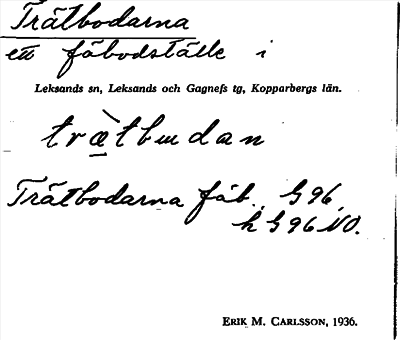 Trätbodarna
ett fäbodställe i
Leksands sn, Leksands och Gagnefs tg, Kopparbergs län.
træ̀tbudan
Trätbodarna fäb. G 96,
h G 96 NO.
ERIK M. CARLSSON, 1936.